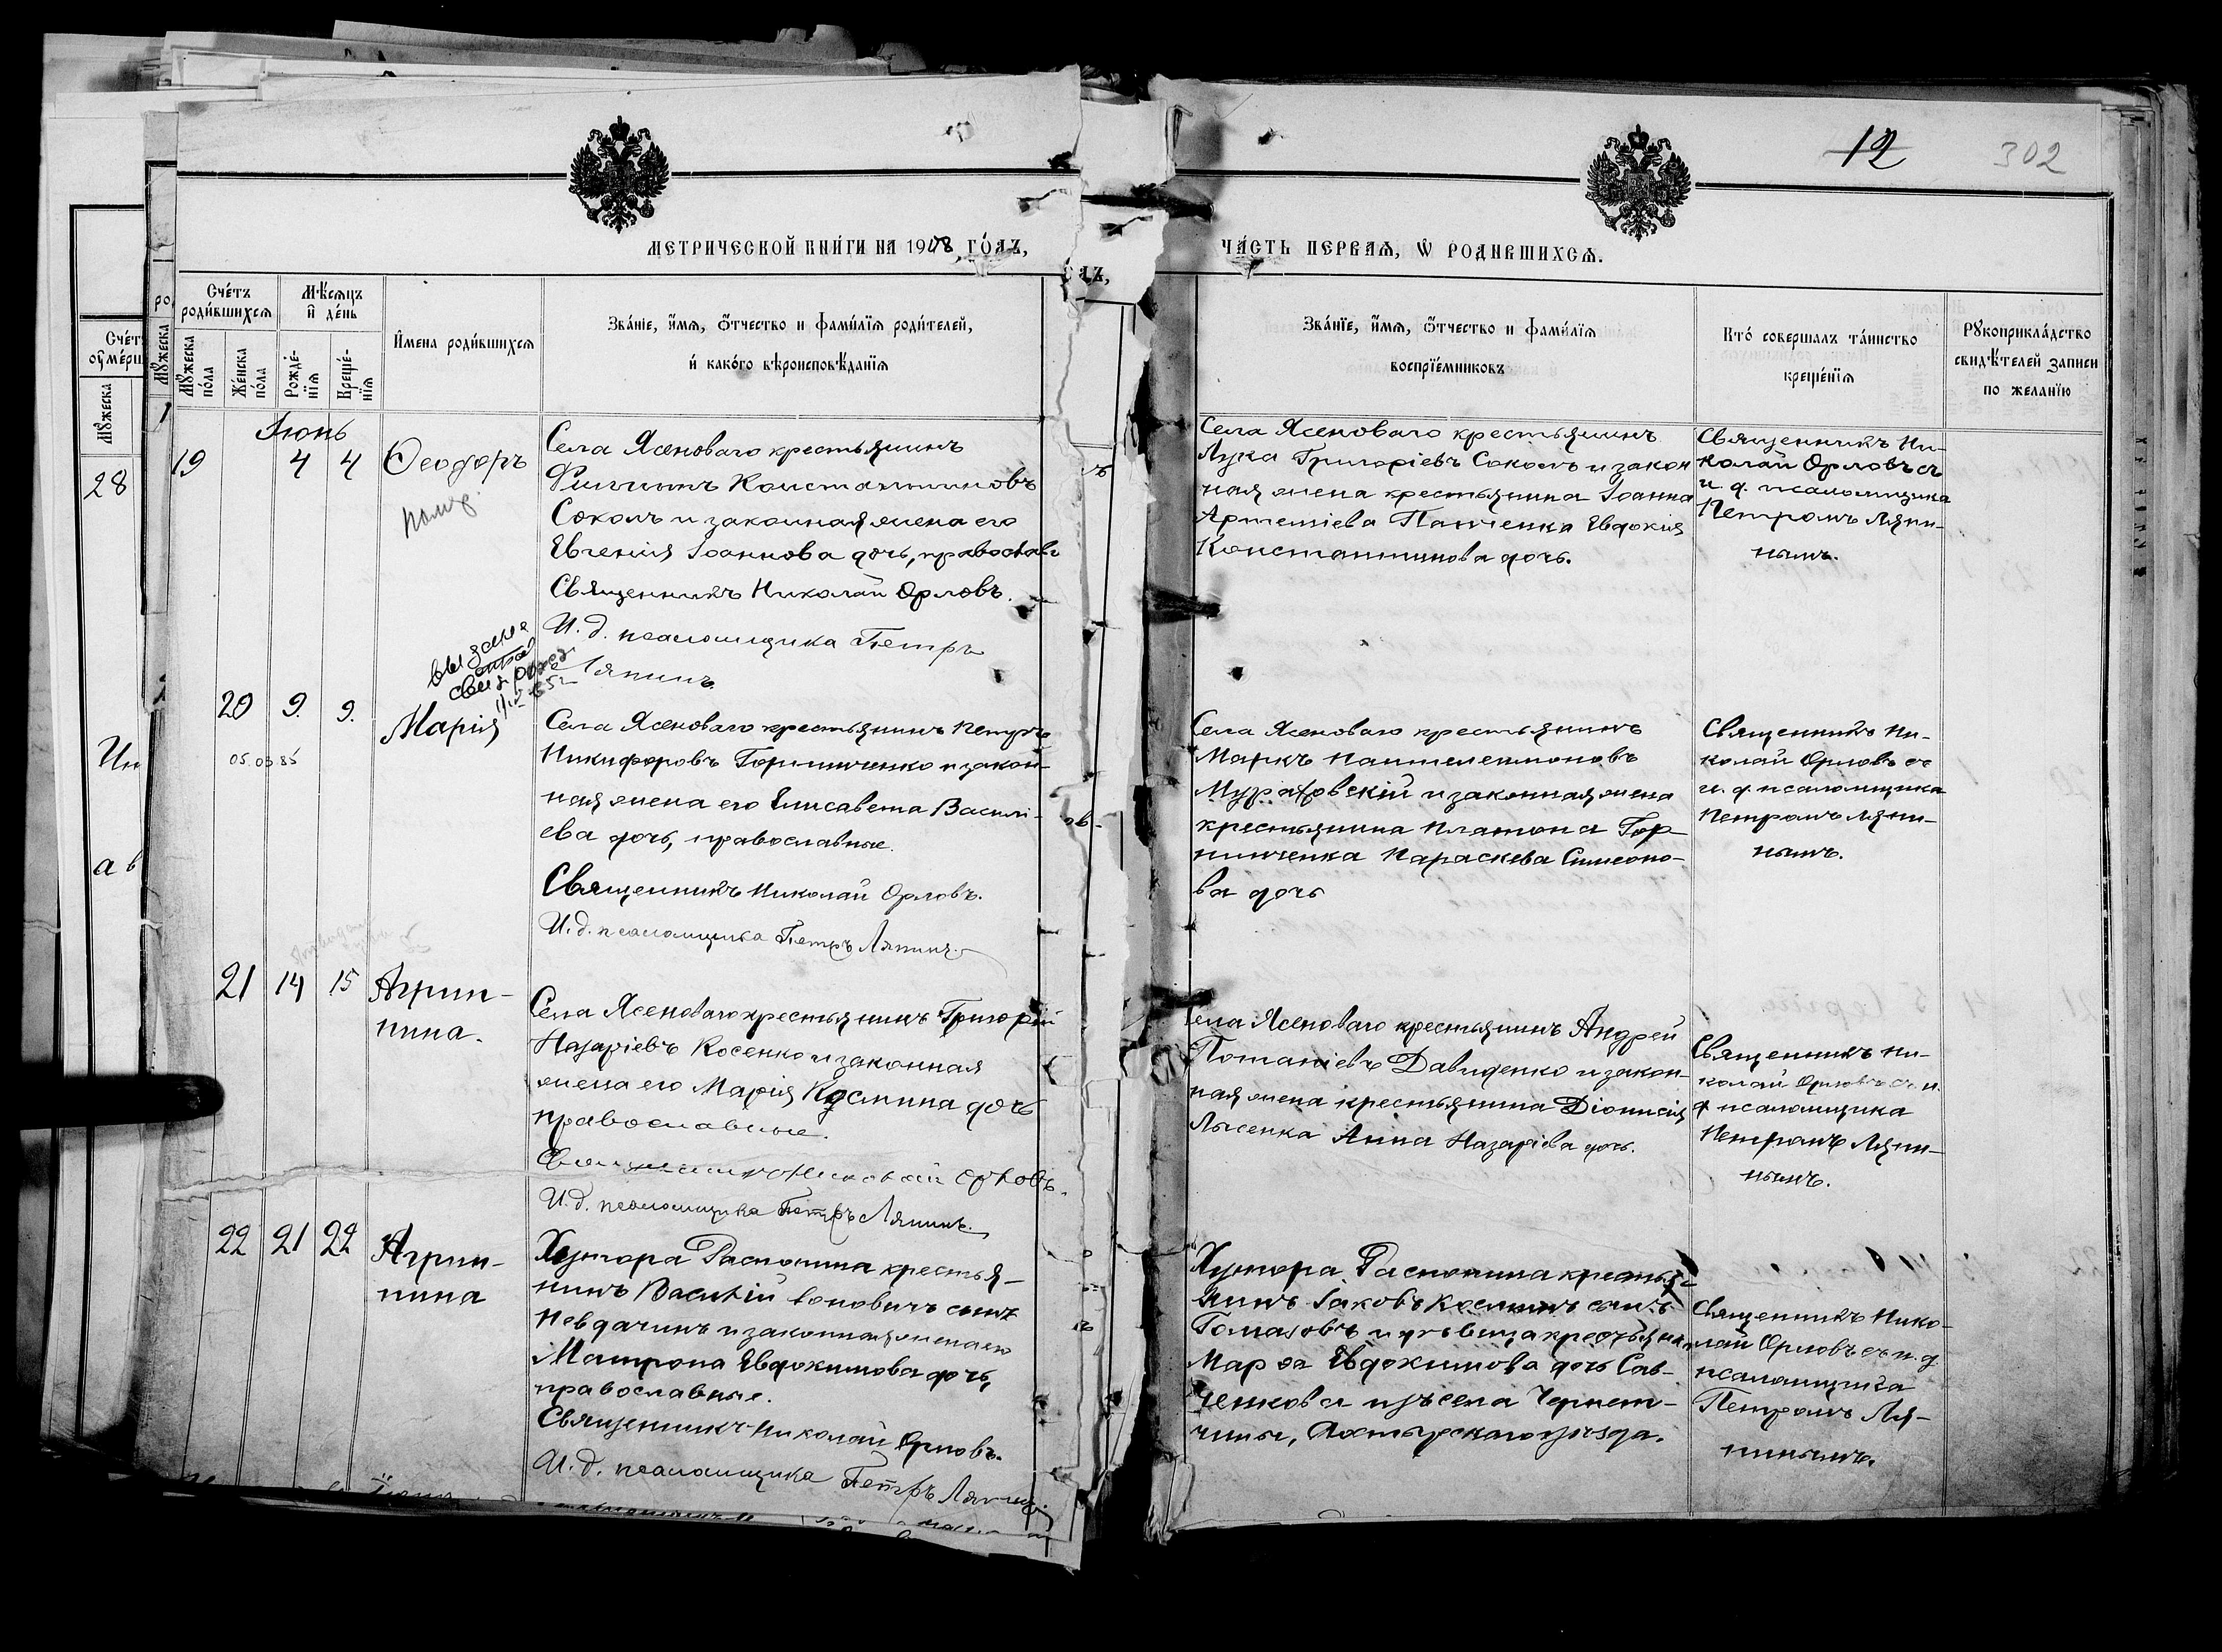 12
302
МЕТРИЧЕСКОЙ КНИ́ГИ НА 1918 ГО́ДЪ,
ЧА́СТЬ ПЕРВАѦ, Ѡ РОДИВШИХСѦ.
Сче́тъ роди́вшихсѧ
Мѣ́сѧцъ и де́нь
И҆мена роди́вшихсѧ
Зва́нїе, и҆́мѧ, ѻ҆́тчество и фами́лїѧ роди́телей,
и́ како́го вѣроисповѣ́данїѧ
Мꙋ́жеска по́ла
Же́нска по́ла
Рожде́-нїѧ
Креще́-нїѧ
Зва́нїе, и҆́мѧ, ѻ҆́тчество и фами́лїѧ
воспрїе́мниковъ
Кто́ соверша́лъ та́инство
креще́нїѧ
Рꙋкоприкла́дство
свидѣ́телей записи
по жела́нїю
Іюнь
19
4
4
Ѳеодоръ
Села Ясеноваго крестьянинъ
Филиппъ Константиновъ
Соколъ и законная жена его
Евгенія Іоаннова дочь, православ
Священникъ Николай Орловъ.
И. д. псаломщика Петръ
Ляпинъ
Села Ясеноваго крестьянинъ
Лука Григоріевъ Соколъ и закон
ная жена крестьянина Іоанна
Артеміева Панченка Евдокія
Константинова дочь.
Священникъ Ни-
колай Орловъ съ
и. д. псаломщика
Петромъ Ляпи-
нымъ.
20
9.
9.
Марія
05.03.85
Села Ясеноваго крестьянинъ Петръ
Никифоровъ Горпинченко и закон-
ная жена его Елисавета Василі-
ева дочь, православные.
Священникъ Николай Орловъ.
И. д. псаломщика Петръ Ляпинъ
Села Ясеноваго крестьянинъ
Маркъ Пантелеимоновъ
Муратовскій и законная жена
крестьянина Платона Гор-
пинченка Параскева Симеоно-
ва дочь
Священникъ Ни-
колай Орловъ съ
и. д. псаломщика
Петромъ Ляпи-
нымъ.
21
14
15
Агрип-
пина.
Села Ясеноваго крестьянинъ Григорій
Назаріевъ Косенко и законная
жена его Марія Космина дочь
православные.
Священникъ Николай Орловъ.
И. д. псаломщика Петръ Ляпинъ.
ела Ясеноваго крестьянинъ Андрей
Потапіевъ Давиденко и закон-
ная жена крестьянина Діонисія
Лысенка Анна Назаріева дочь.
Священникъ Ни-
колай Орловъ съ и.
д псаломщика
Петромъ Ляпи-
нымъ.
22
21
22
Агрип-
пина
Хутора Распопина крестья-
нинъ Василій Іоновичъ сынъ
Невдачинъ и законная жена его
Матрона Евдокимова дочь,
православные.
Священникъ Николай Орловъ.
И. д. псаломщика Петръ Ляпинъ
Хутора Распопина крестья-
нинъ Іаковъ Косминъ сынъ
и дѣвица крестьян
Марѳа Евдокимова дочь Сав-
ченкова изъ села Чернет-
чины, Ахтырскаго уѣзда.
Священникъ Нико-
лай Орловъ съ и. д
псаломщика
Петромъ Ля-
пинымъ.
Сче́т
ᲂу҆ме́рш
Мꙋ́жеска
28